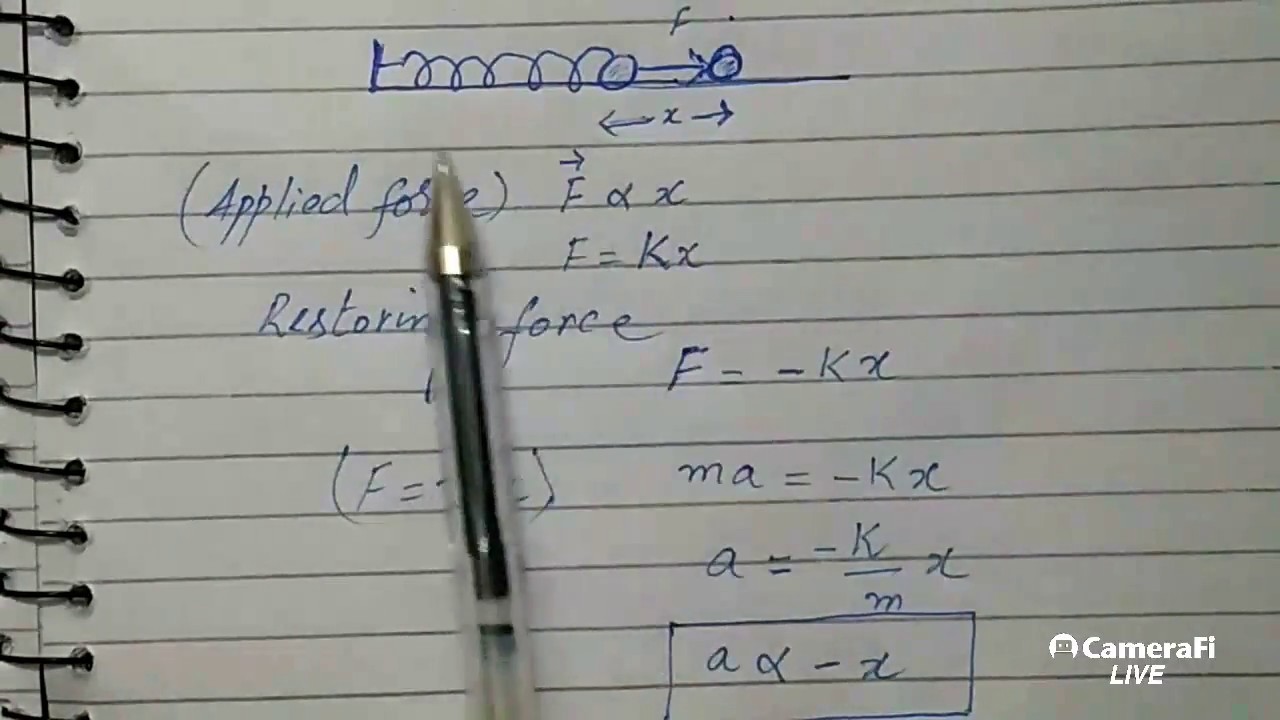 F
x
(Applied force) F⃗ ∝ x
F = Kx
force
F = -Kx
(F =
ma = -Kx
a = -K/m x
a ∝ -x
CameraFi
LIVE